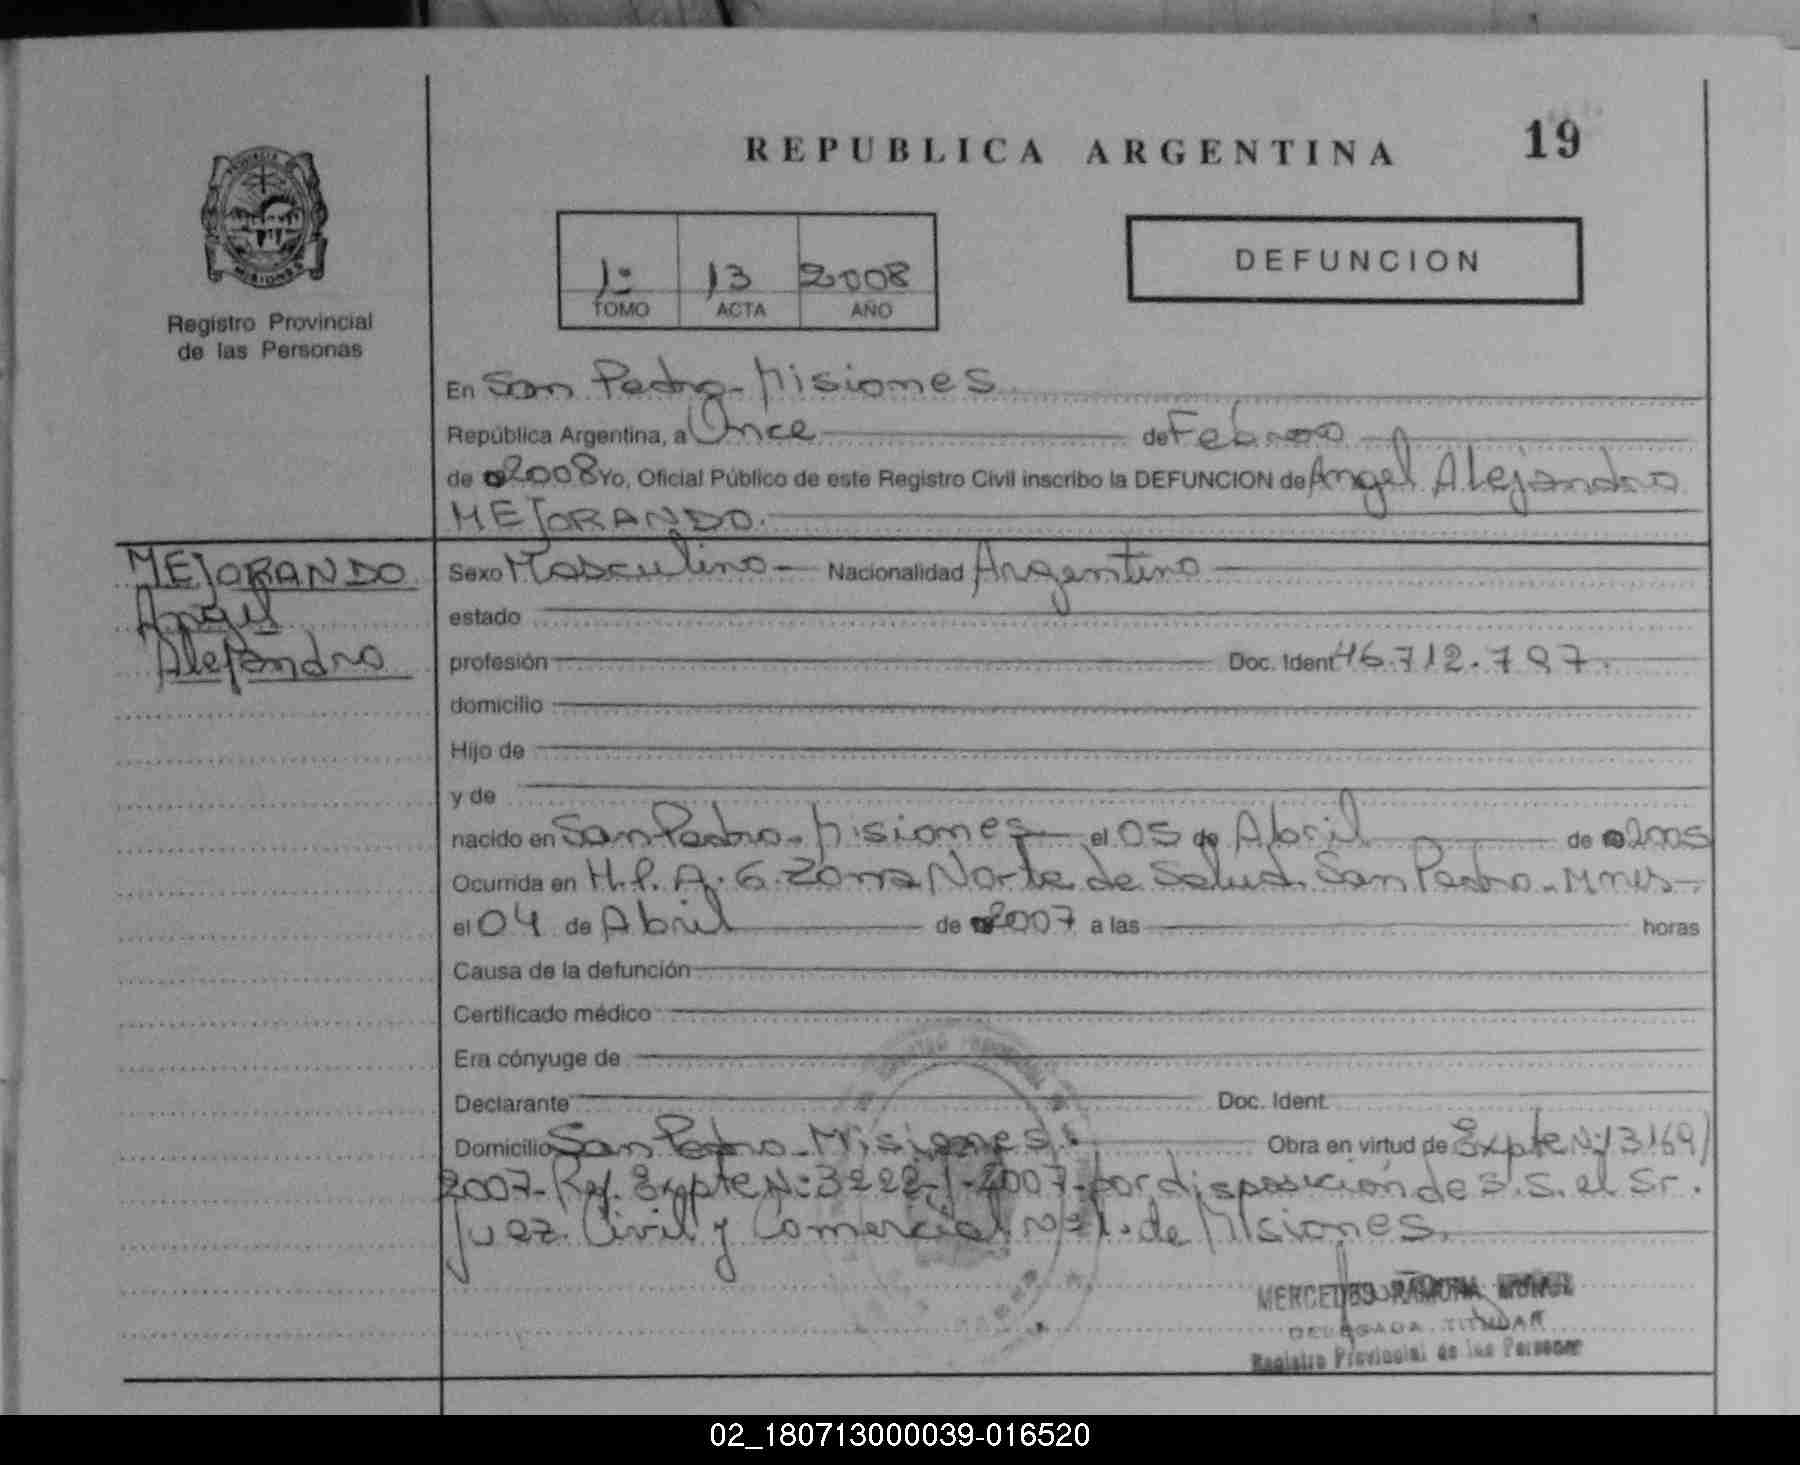 REPUBLICA ARGENTINA 19
MISIONES
Registro Provincial
de las Personas
1º 13 2008
TOMO ACTA AÑO
DEFUNCION
En San Pedro - Misiones
República Argentina, a Once de Febrero
de 2008 Yo, Oficial Público de este Registro Civil inscribo la DEFUNCION de Angel Alejandro
MEJORANDO.
MEJORANDO
Angel
Alejandro
Sexo Masculino - Nacionalidad Argentino
estado
profesión Doc. Ident 46.712.797.
domicilio
Hijo de
y de
nacido en San Pedro - Misiones el 05 de Abril de 2005
Ocurrida en H.P.A. 6. Zona Norte de Salud. San Pedro - Mnes -
el 04 de Abril de 2007 a las horas
Causa de la defunción
Certificado médico
Era cónyuge de
Declarante Doc. Ident.
Domicilio San Pedro - Misiones. Obra en virtud de Expte Nº 3169/
2007 - Ref. Expte Nº 3222/2007 - por disposición de S.S. el Sr.
Juez Civil y Comercial Nº 1. de Misiones.
MERCEDES RAMONA
DELEGADA TITULAR
Registro Provincial de las Personas
02_180713000039-016520